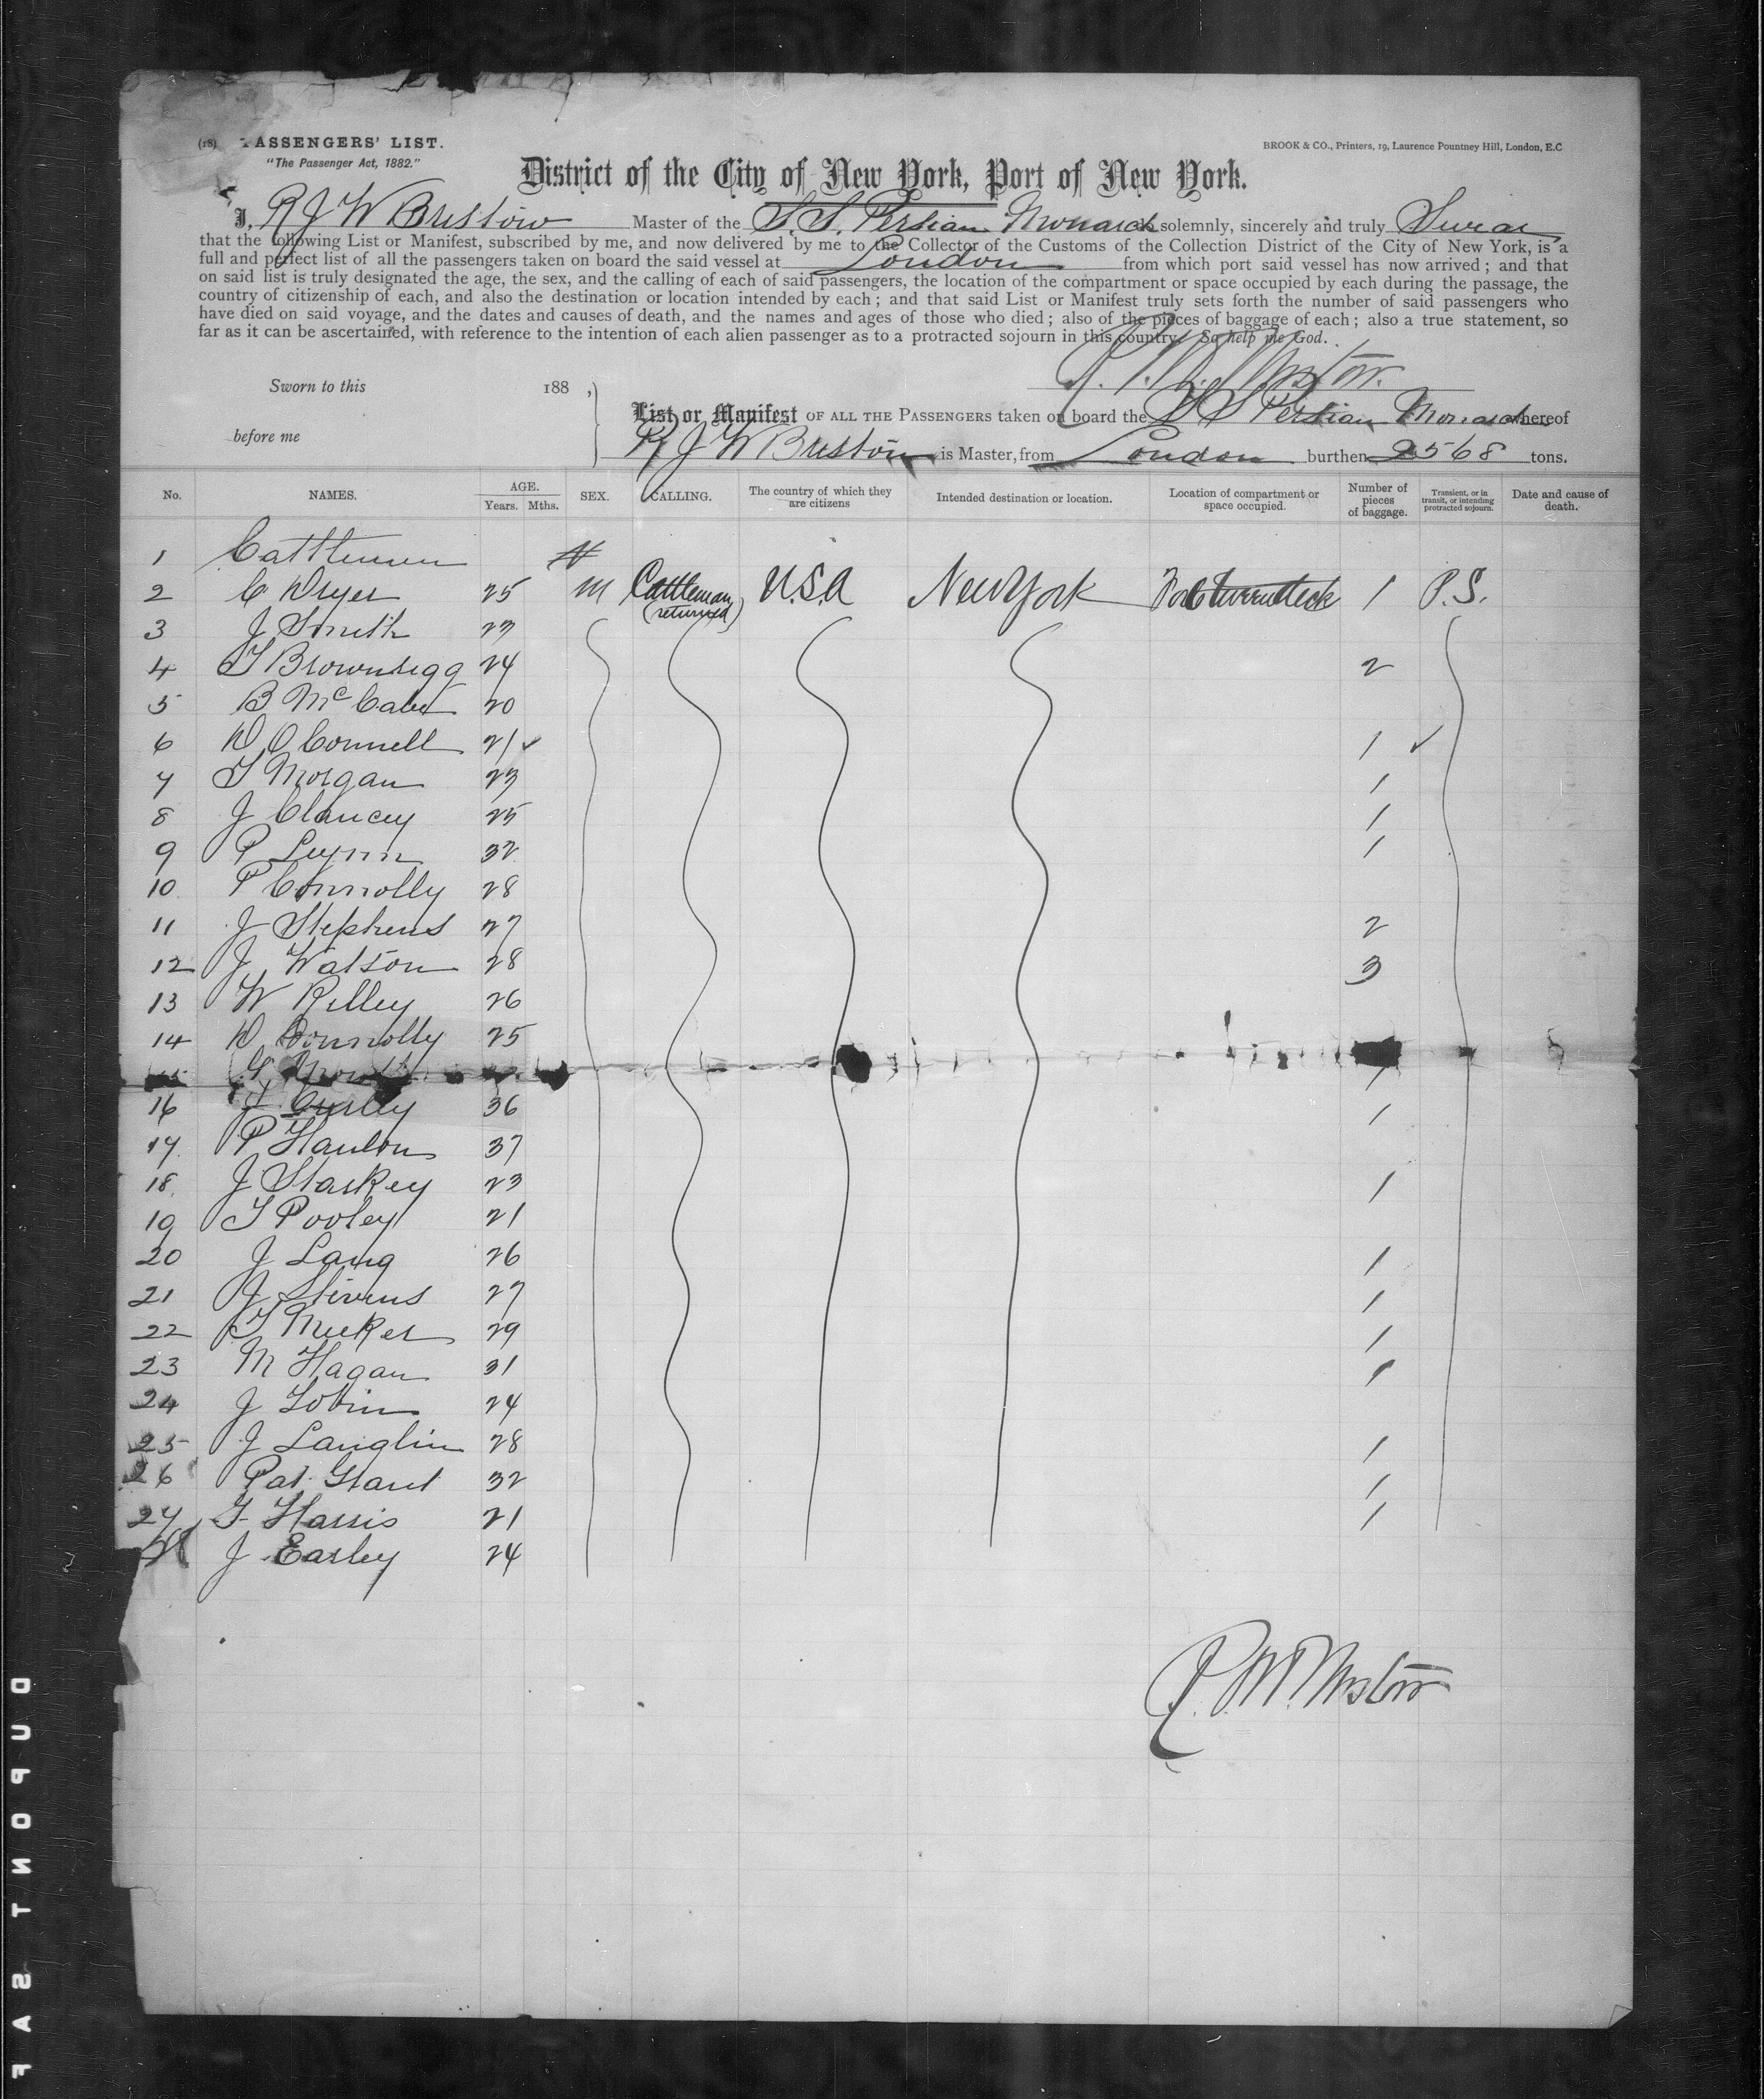 (18) PASSENGERS' LIST.
"The Passenger Act, 1882."
BROOK & CO., Printers, 19, Laurence Pountney Hill, London, E.C
District of the City of New York, Port of New York.
I, R J W Bristow Master of the S.S. Persian Monarch solemnly, sincerely and truly Swear
that the following List or Manifest, subscribed by me, and now delivered by me to the Collector of the Customs of the Collection District of the City of New York, is a
full and perfect list of all the passengers taken on board the said vessel at London from which port said vessel has now arrived; and that
on said list is truly designated the age, the sex, and the calling of each of said passengers, the location of the compartment or space occupied by each during the passage, the
country of citizenship of each, and also the destination or location intended by each; and that said List or Manifest truly sets forth the number of said passengers who
have died on said voyage, and the dates and causes of death, and the names and ages of those who died; also of the pieces of baggage of each; also a true statement, so
far as it can be ascertained, with reference to the intention of each alien passenger as to a protracted sojourn in this country. So help me God.
Sworn to this 188 ,
before me
List or Manifest OF ALL THE PASSENGERS taken on board the S S Persian Monarch whereof
R J W Bristow is Master, from London burthen 2568 tons.
No. NAMES. AGE. Years. Mths. SEX. CALLING. The country of which they are citizens Intended destination or location. Location of compartment or space occupied. Number of pieces of baggage. Transient, or in transit, or intending protracted sojourn. Date and cause of death.
1 Cattlemen
2 C Dryer 25 M Cattleman (returned) U.S.A New York 1 P.S.
3 J Smith 23
4 T Brownrigg 24 2
5 B McCabe 20
6 D O Connell 21 ✓ 1 ✓
7 T Morgan 23 1
8 J Clancey 25 1
9 P Lynn 32 1
10 P Connolly 28
11 J Stephens 27 2
12 J Watson 28 3
13 W Rilley 26
14 D Connolly 25
G 1
16 Curley 36 1
17 P Hanlon 37
18 J Starkey 23 1
19 T Pooley 21
20 J Lang 26 1
21 J Stivens 27 1
22 T Meeker 29 1
23 M Hagan 31 1
24 J Tobin 24
25 J Langlin 28 1
26 Pat Grant 32 1
27 F Harris 21 1
28 J Earley 24
DUPONT SAF